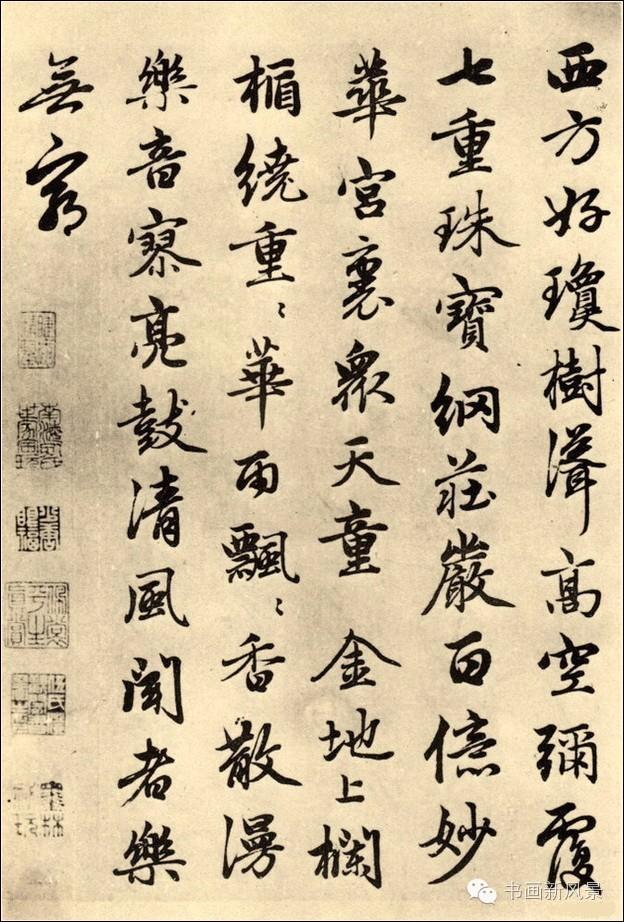 西方好瓊樹聳高空彌覆
七重珠寶網莊嚴百億妙
華宮裏眾天童 金地上欄
楯繞重〻華雨飄〻香散漫
樂音寥亮鼓清風聞者樂
無窮
书画新风景